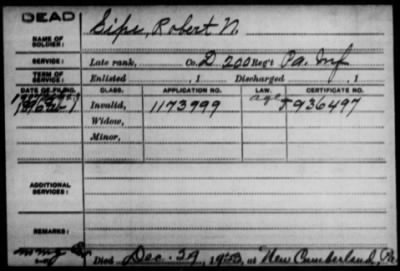 DEAD
NAME OF SOLDIER: Sipe, Robert N.
SERVICE: Late rank, Co. D 200 Reg't Pa. Inf
TERM OF SERVICE: Enlisted , 1 Discharged , 1
DATE OF FILING. CLASS. APPLICATION NO. LAW. CERTIFICATE NO.
Invalid, 1173799 age 936497
Widow,
Minor,
ADDITIONAL SERVICES:
REMARKS:
Died Dec. , 19 , at New Cumberland, Pa